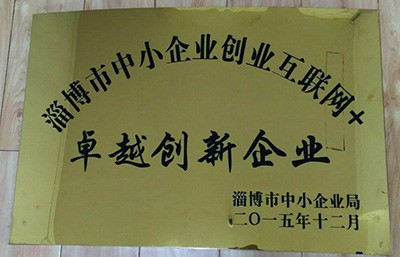 淄博市中小企业创业互联网+
卓越创新企业
淄博市中小企业局
二〇一五年十二月